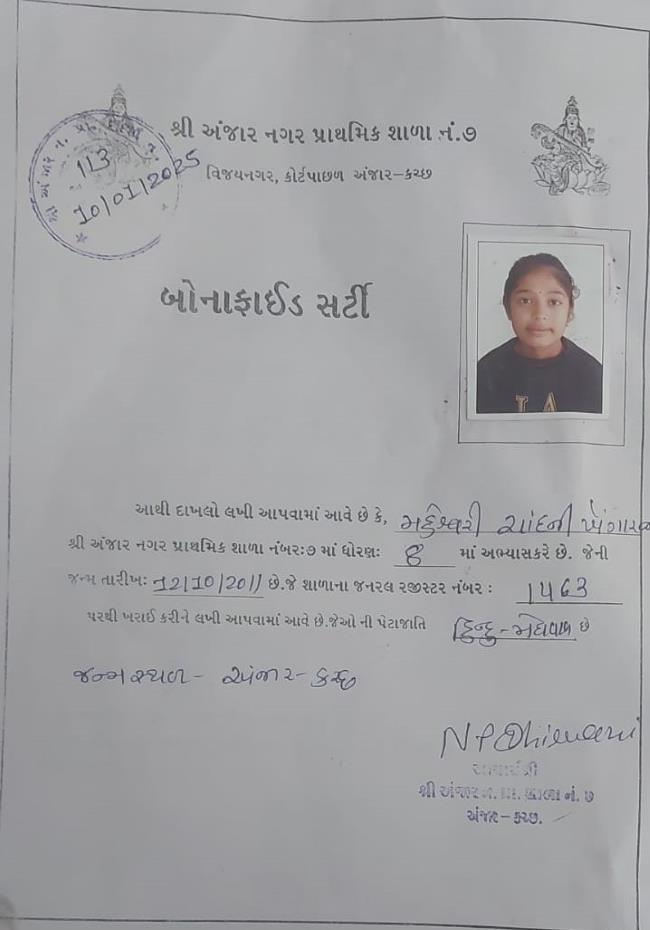 શ્રી અંજાર નગર પ્રાથમિક શાળા નં.૭
વિજયનગર, કોર્ટપાછળ અંજાર-કચ્છ
113
10/01/2025
બોનાફાઈડ સર્ટી
આથી દાખલો લખી આપવામાં આવે છે કે, મહેશ્વરી ચાંદની
શ્રી અંજાર નગર પ્રાથમિક શાળા નંબર:૭ માં ધોરણ: 8 માં અભ્યાસકરે છે. જેની
જન્મ તારીખ: 12/10/2011 છે.જે શાળાના જનરલ રજીસ્ટર નંબર : 1463
પરથી ખરાઈ કરીને લખી આપવામાં આવે છે.જેઓ ની પેટાજાતિ હિન્દુ-મેઘવાળ છે
જન્મ સ્થળ - અંજાર - કચ્છ
આચાર્યશ્રી
શ્રી અંજાર ન. પ્રા. શાળા નં. ૭
અંજાર-કચ્છ.